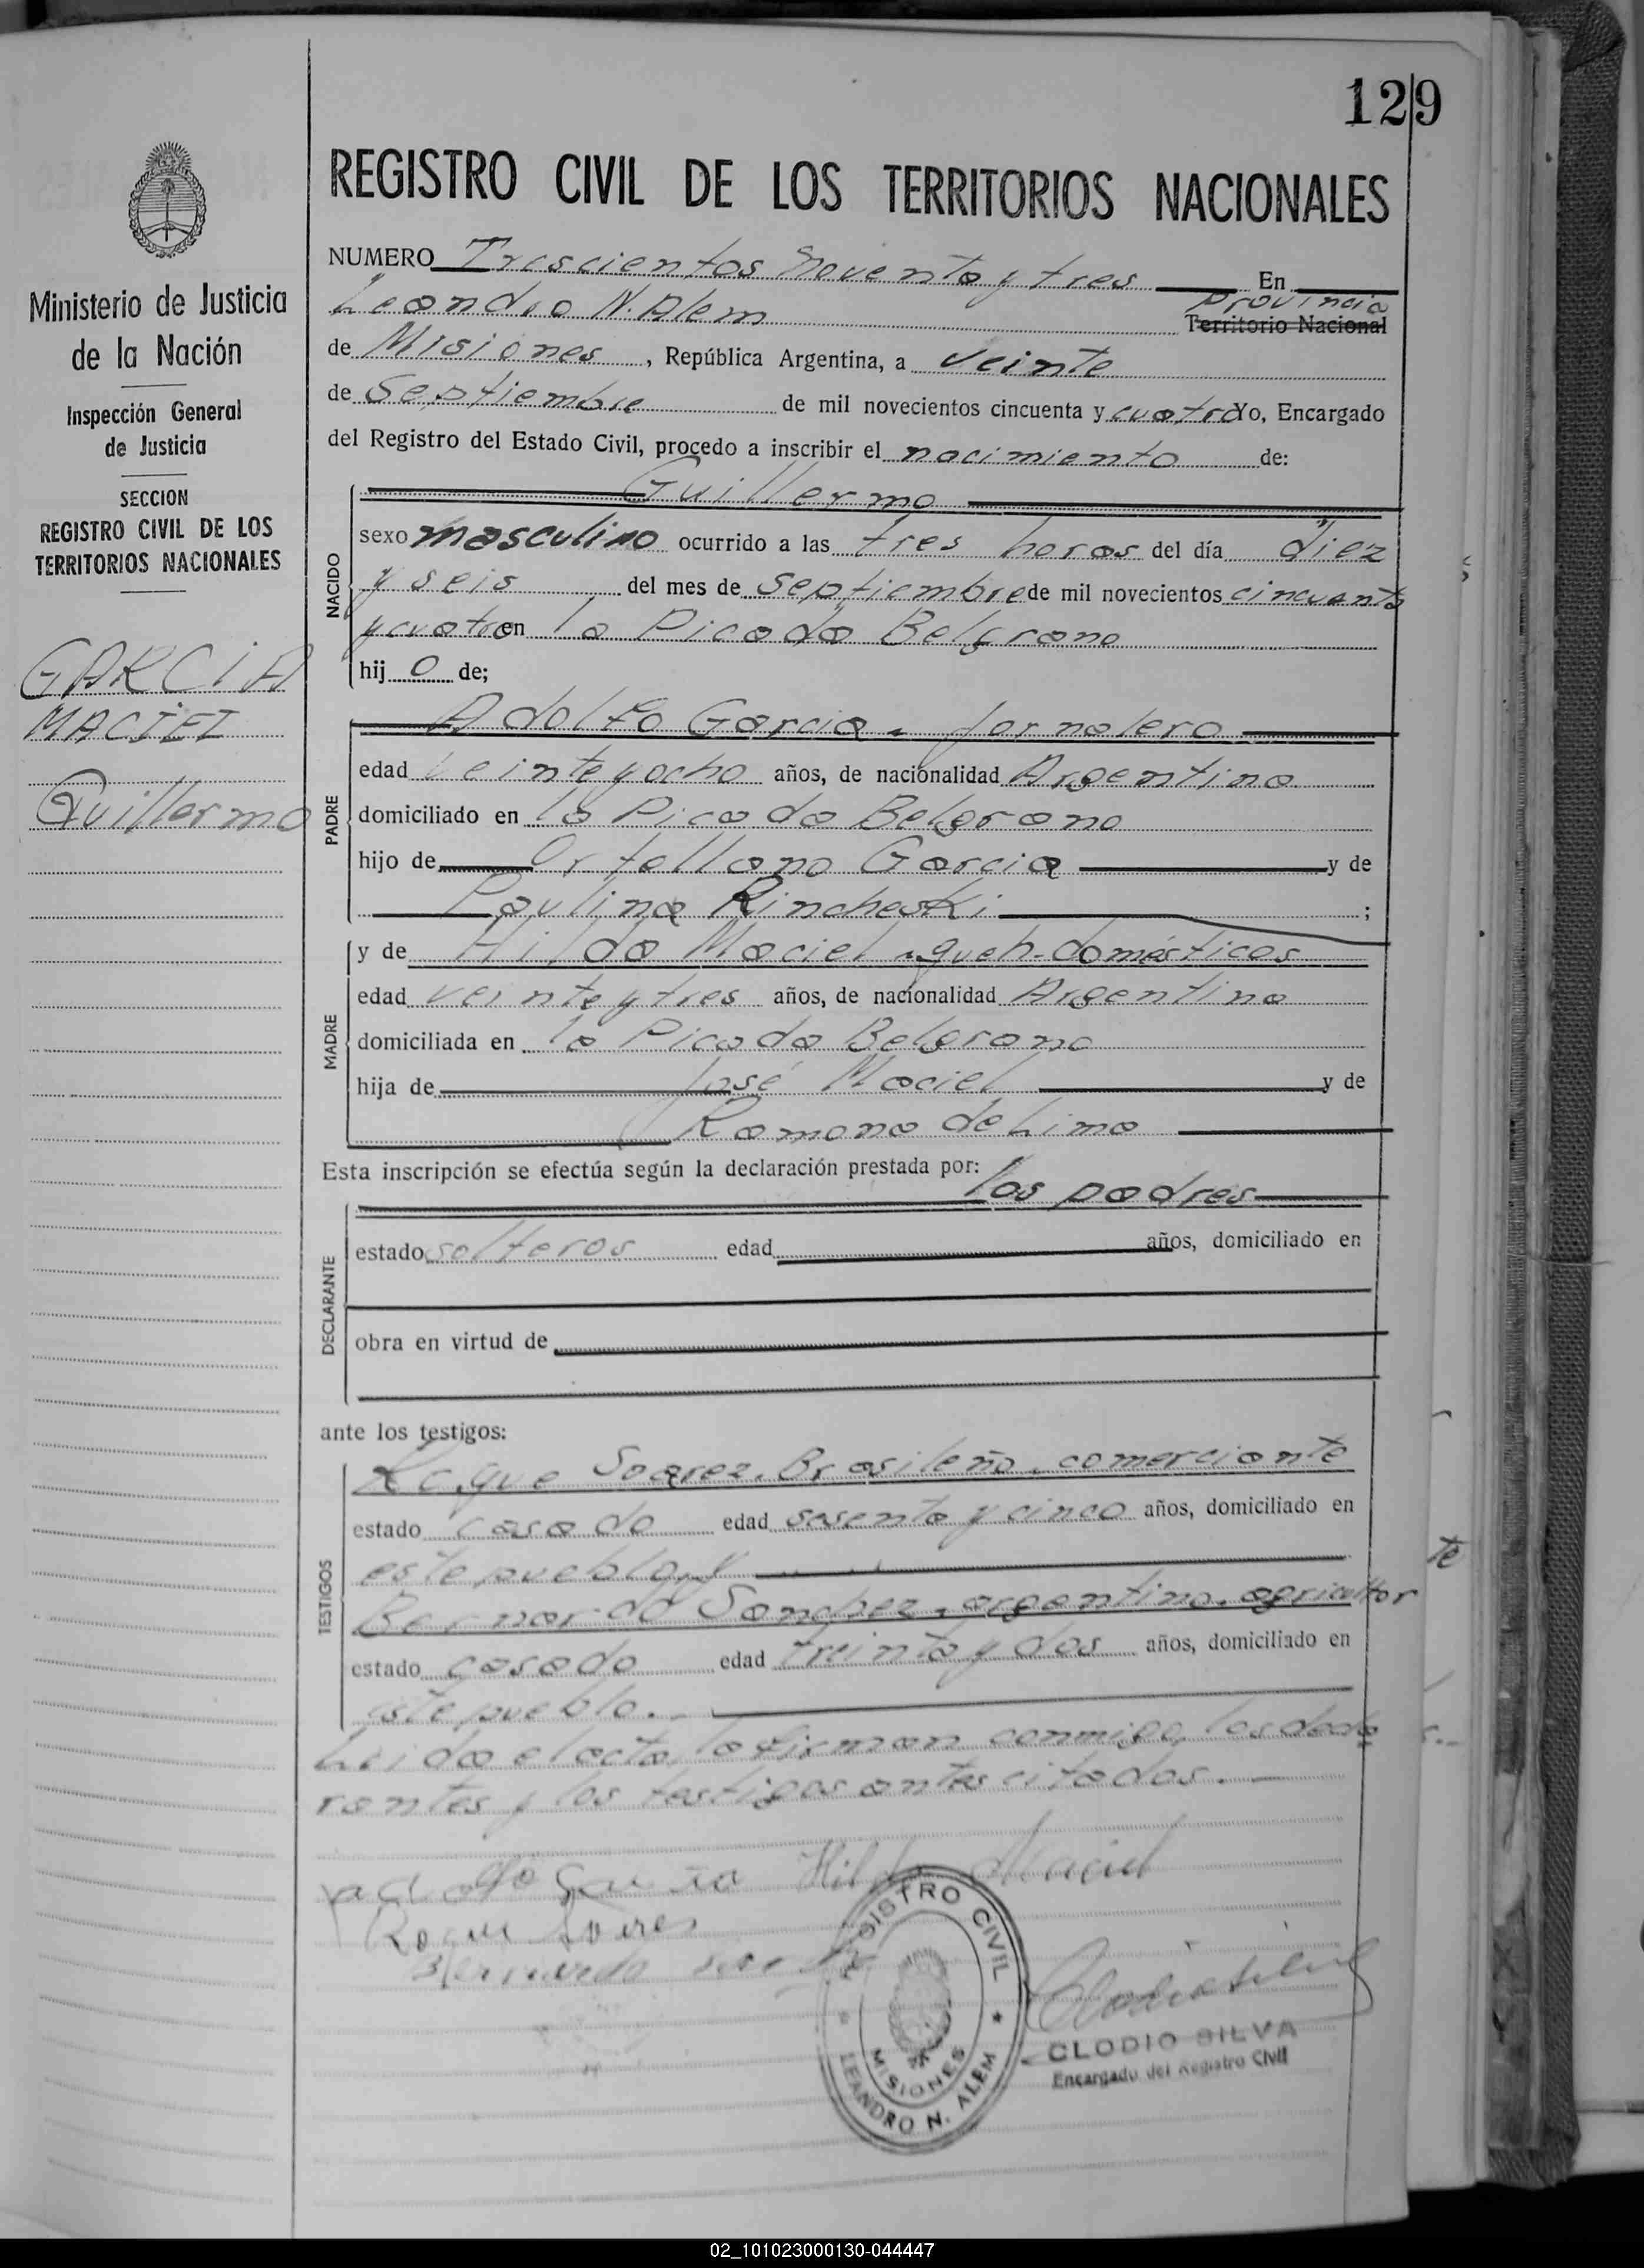 129
REGISTRO CIVIL DE LOS TERRITORIOS NACIONALES
Ministerio de Justicia
de la Nación
Inspección General
de Justicia
SECCION
REGISTRO CIVIL DE LOS
TERRITORIOS NACIONALES
GARCIA
MACIEL
Guillermo
NUMERO Trescientos Noventa y tres En
Leandro N. Alem provincia Territorio Nacional
de Misiones, República Argentina, a veinte
de Septiembre de mil novecientos cincuenta y cuatro Yo, Encargado
del Registro del Estado Civil, procedo a inscribir el nacimiento de:
NACIDO
Guillermo
sexo masculino ocurrido a las tres horas del día diez
y seis del mes de septiembre de mil novecientos cincuenta
y cuatro en la Picada Belgrano
hijo de;
PADRE
Adolfo Garcia. jornalero
edad veinte y ocho años, de nacionalidad Argentina
domiciliado en la Picada Belgrano
hijo de Garcia y de
Paulina ;
MADRE
y de Hilda Maciel. queh. domésticos
edad veinte y tres años, de nacionalidad Argentina
domiciliada en la Picada Belgrano
hija de José Maciel y de
Ramona de Lima
Esta inscripción se efectúa según la declaración prestada por:
los padres
DECLARANTE
estado solteros edad años, domiciliado en
obra en virtud de
ante los testigos:
TESTIGOS
Roque Soarez. Brasileño. comerciante
estado casado edad sesenta y cinco años, domiciliado en
este pueblo y
Bernardo Sanchez. argentino. agricultor
estado casado edad treinta y dos años, domiciliado en
este pueblo.
Leida el acta, la firman conmigo, los decla
rantes y los testigos antes citados.
Adolfo Garcia Hilda Maciel
Roque Soares
Bernardo
REGISTRO CIVIL
MISIONES
LEANDRO N. ALEM
CLODIO SILVA
Encargado del Registro Civil
te
02_101023000130-044447